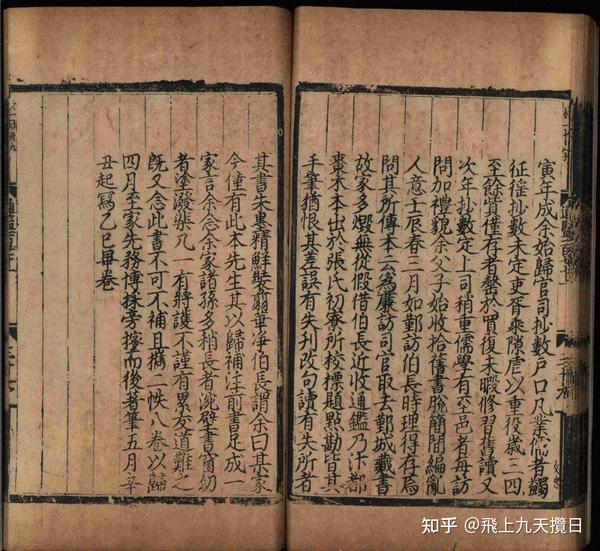 寅年成余始歸官司抄數戶口凡業儒者蠲
征徭抄數未定吏胥乘隙虐以重役歲三四
至餘貲僅存者罄於買復未暇修習舊讀又
次年抄數定上司稍重儒學有至邑者每訪
問加禮貌余父子始收拾舊書脫簡閒編亂
人意壬辰春三月如鄞訪伯長時理得存焉
問其所傳本云為廉訪司官取去鄞城藏書
故家多燬無從假借伯長近收通鑑乃汴都
棗木本出於張氏初寮所校標題點勘皆其
手筆猶恨其差誤有失刊改句讀有失所者
其書朱墨精鮮裝剪華凈伯長謂余曰某家
今僅有此本先生其以歸補注前書足成一
家言余念余家諸孫多稍長者涴壁書窗幼
者塗潑柒几一有將護不謹有累友道難之
既又念此書不可不補且攜二帙八卷以歸
四月至家先務博採旁搜而後者筆五月辛
丑起寫乙巳畢卷
知乎 @飛上九天攬日